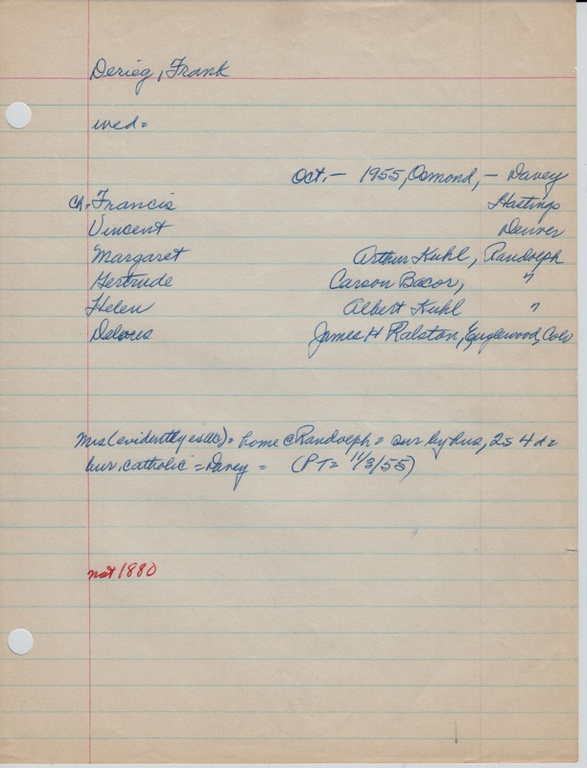 Derieg, Frank
wed=
Oct.- 1955, Osmond, - Davey
ch- Francis Hastings
Vincent Denver
Margaret Arthur Kuhl, Randolph
Gertrude Carson Bacor, "
Helen Albert Kuhl "
Delores James H Ralston, Englewood, Colo
Mrs (evidently = home @ Randolph = sur by hus, 2s 4d=
bur. catholic = Davey = (PT= 11/3/55)
not 1880